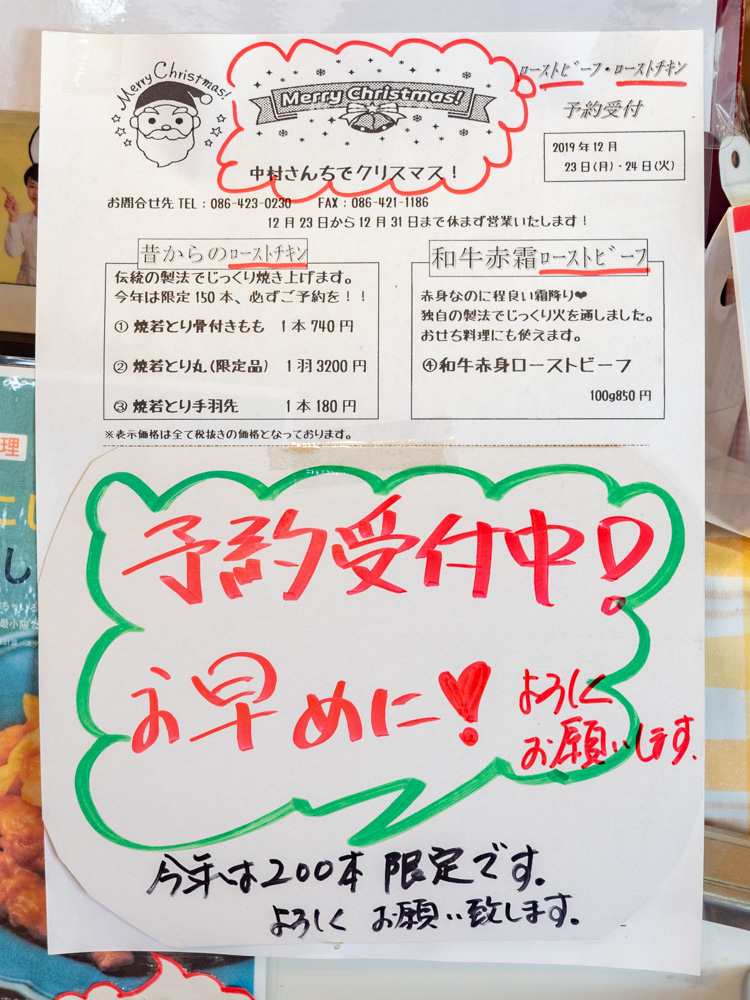 Merry Christmas!
Merry Christmas!
中村さんちでクリスマス！
ローストビーフ・ローストチキン
予約受付
2019年12月
23日(月)・24日(火)
お問合せ先 TEL：086-423-0230　FAX：086-421-1186
12月23日から12月31日まで休まず営業いたします！
昔からのローストチキン
伝統の製法でじっくり焼き上げます。
今年は限定150本、必ずご予約を！！
① 焼若とり骨付きもも　1本740円
② 焼若とり丸(限定品)　1羽3200円
③ 焼若とり手羽先　1本180円
和牛赤霜ローストビーフ
赤身なのに程良い霜降り❤
独自の製法でじっくり火を通しました。
おせち料理にも使えます。
④和牛赤身ローストビーフ
100g850円
※表示価格は全て税抜きの価格となっております。
予約受付中！
お早めに！
よろしく
お願いします。
今年は200本 限定です。
よろしく お願い致します。
理